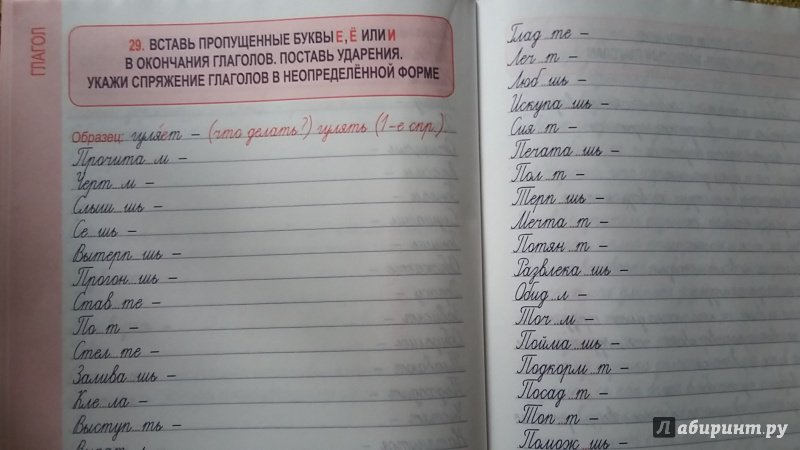 ГЛАГОЛ
29. ВСТАВЬ ПРОПУЩЕННЫЕ БУКВЫ Е, Ё ИЛИ И
В ОКОНЧАНИЯ ГЛАГОЛОВ. ПОСТАВЬ УДАРЕНИЯ.
УКАЖИ СПРЯЖЕНИЕ ГЛАГОЛОВ В НЕОПРЕДЕЛЁННОЙ ФОРМЕ
Образец: гуля́ет – (что делать?) гулять (1-е спр.)
Прочита м –
Черт м –
Слыш шь –
Се шь –
Вытерп шь –
Прогон шь –
Став те –
По т –
Стел те –
Залива шь –
Кле ла –
Выступ ть –
Глад те –
Леч т –
Люб шь –
Искупа шь –
Сия т –
Печата шь –
Пол т –
Терп шь –
Мечта т –
Потян т –
Развлека шь –
Обид л –
Точ м –
Пойма шь –
Подкорм т –
Посад т –
Топ т –
Помож шь –
Лабиринт.ру